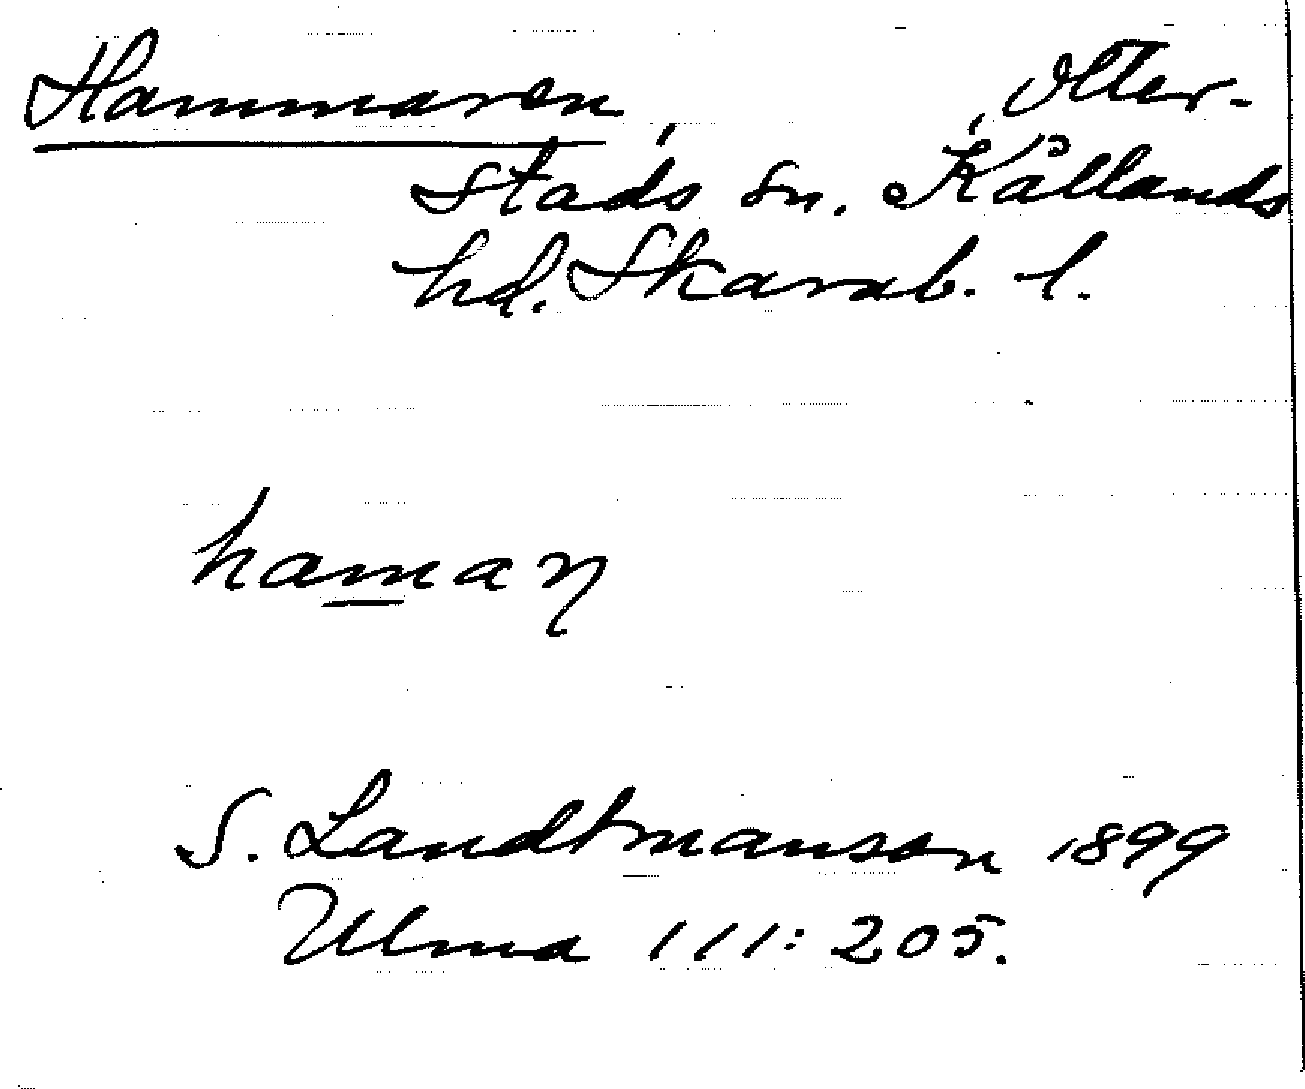 Hammaren, Otter-
stads sn. Kållands
hd. Skarab. l.
hamaŋ
S. Landtmanson 1899
Ulma 111:205.